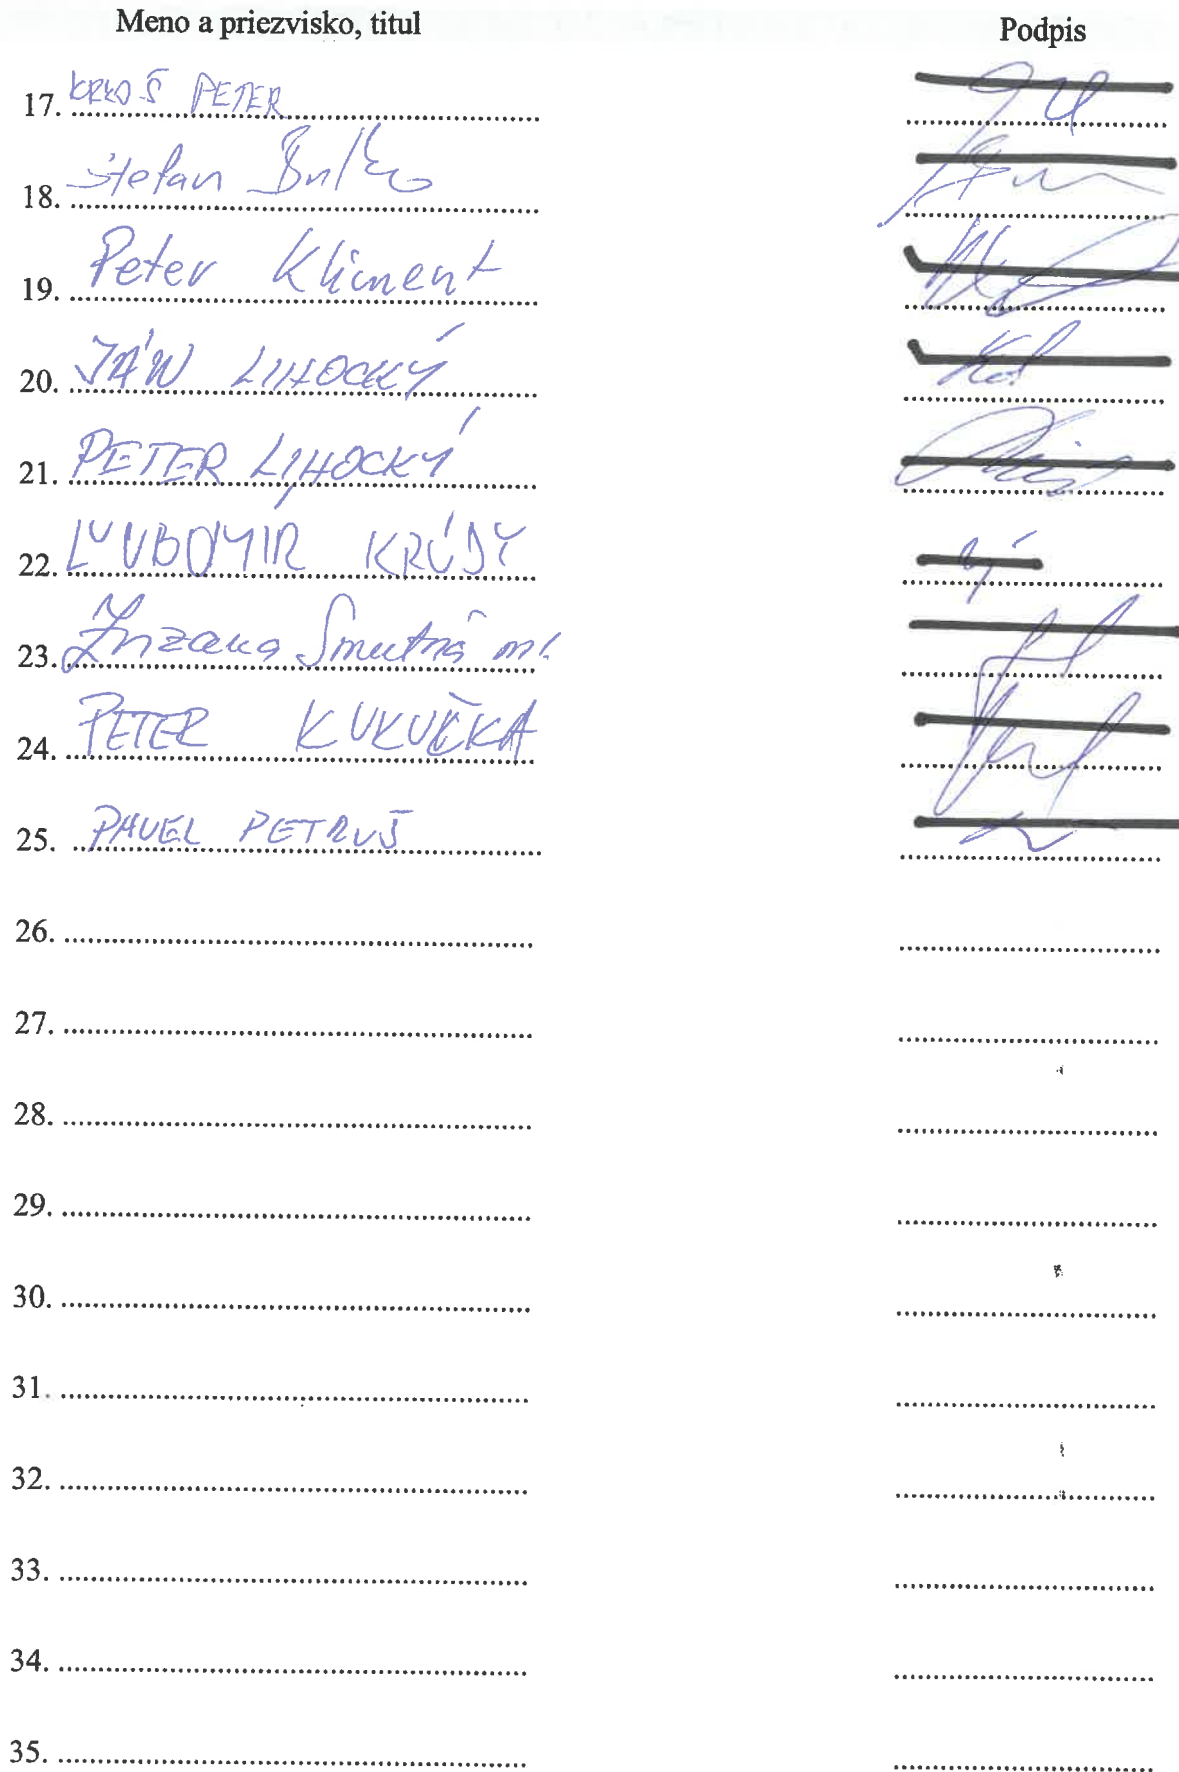 Meno a priezvisko, titul Podpis
17. KRKOŠ PETER
18. Štefan
19. Peter Kliment
20. JÁN LIHOCKÝ
21. PETER LIHOCKÝ
22. ĽUBOMÍR KRÚDY
23. Zuzana Smutná ml.
24. PETER KUKUČKA
25. PAVEL PETRUŠ
26.
27.
28.
29.
30.
31.
32.
33.
34.
35.